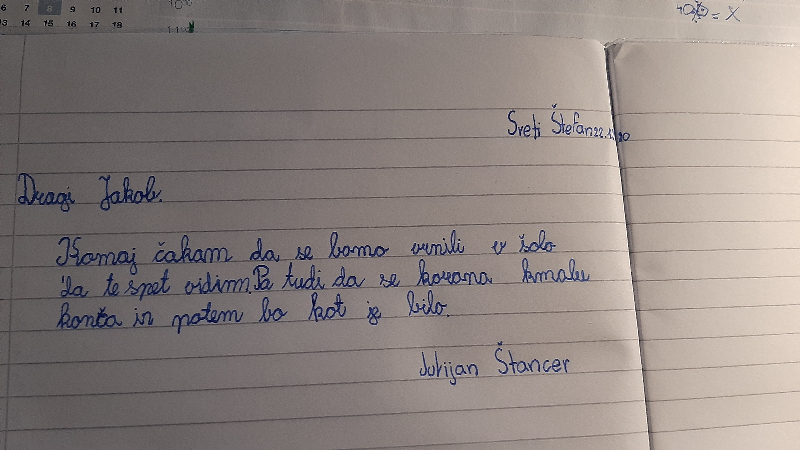 6 7 8 9 10 11
13 14 15 16 17 18
Sveti Štefan
Dragi Jakob.
Komaj čakam da se bomo vrnili v šolo
da te spet vidim. Pa tudi da se korona kmalu
konča in potem bo kot je bilo.
Julijan Štancer